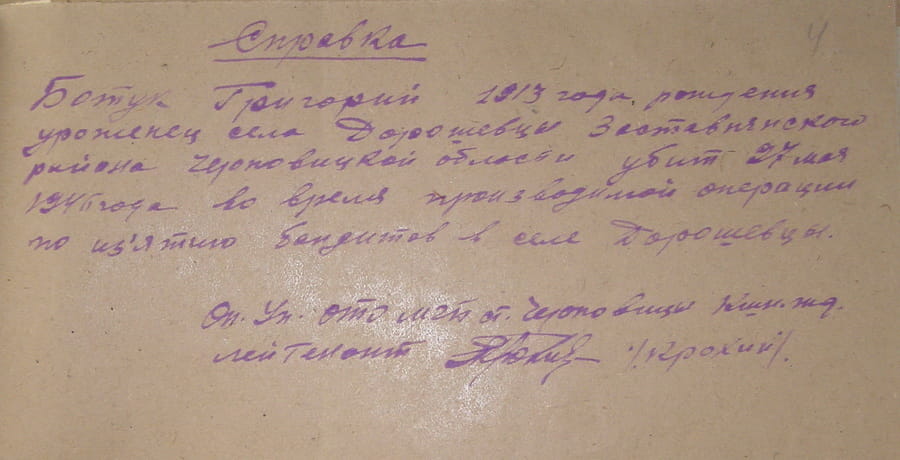 4
Справка
Ботук Григорий 1913 года рождения
уроженец села Дорошевцы Заставнянского
района Черновицкой области убит 27 мая
года во время производимой операции
по из'ятию бандитов в селе Дорошевцы.
Оп. Уп. ОТО МГБ ст. Черновицы Киш. жд.
лейтенант /Крохий/.